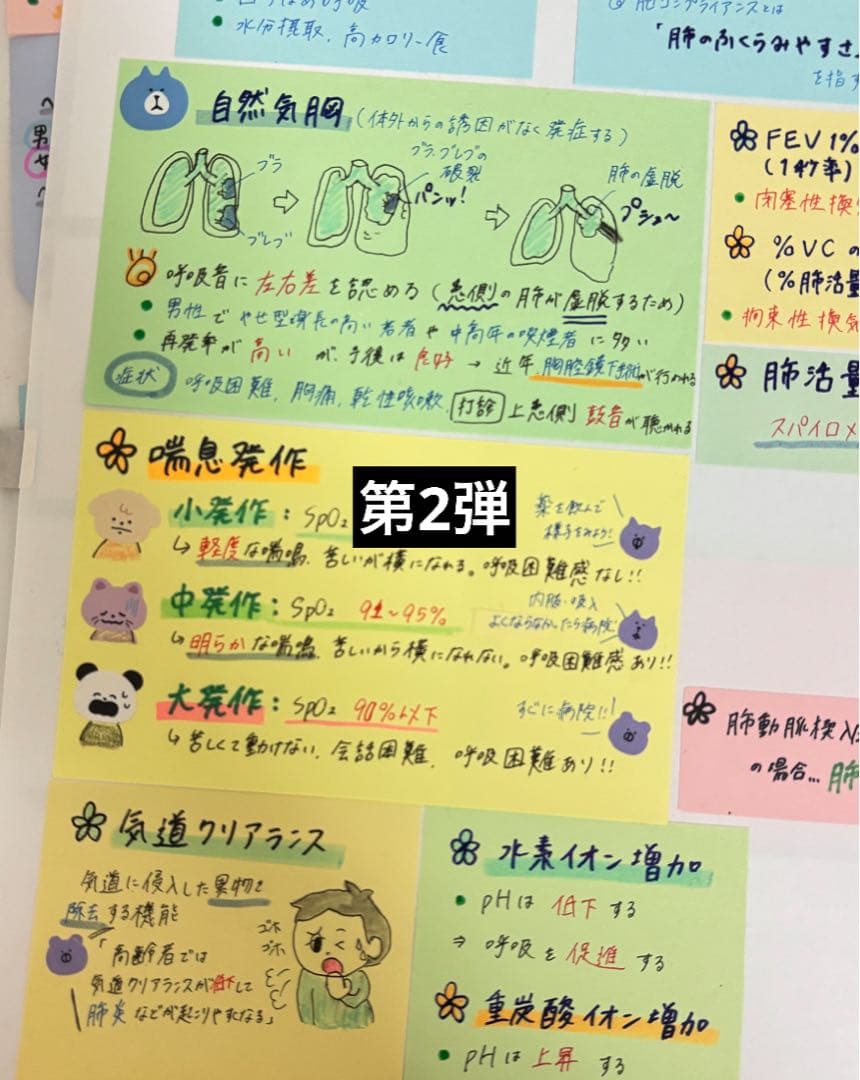 水分摂取、高カロリー食
「肺のふくらみやすさ
を指す
自然気胸(体外からの誘因がなく発症する)
ブラ
ブレブ
ブラ、ブレブの
破裂
パンッ!
肺の虚脱
プシュ〜
呼吸音に左右差を認める(患側の肺が虚脱するため)
・男性でやせ型身長の高い若者や中高年の喫煙者に多い
・再発率が高いが、予後は良好→近年、胸腔鏡下手術が行われる
症状 呼吸困難、胸痛、乾性咳嗽、打診上患側鼓音が聴かれる
FEV1%
(1秒率)
・閉塞性換
%VCの
(%肺活量
・拘束性換気
肺活量
スパイロメ
喘息発作
第2弾
小発作:SpO2
薬を飲んで
様子をみよう!
↳軽度な喘鳴、苦しいが横になれる。呼吸困難感なし!!
中発作:SpO2 91~95%
内服・吸入
よくならなかったら病院
↳明らかな喘鳴、苦しいから横になれない。呼吸困難感あり!!
大発作:SpO2 90%以下
すぐに病院!!
↳苦しくて動けない、会話困難、呼吸困難あり!!
肺動脈楔入
の場合…肺
気道クリアランス
気道に侵入した異物を
除去する機能
「高齢者では
気道クリアランスが低下して
肺炎などが起こりやすくなる」
ゴホ
ゴホ
水素イオン増加
・pHは低下する
⇒呼吸を促進する
重炭酸イオン増加
・pHは上昇する